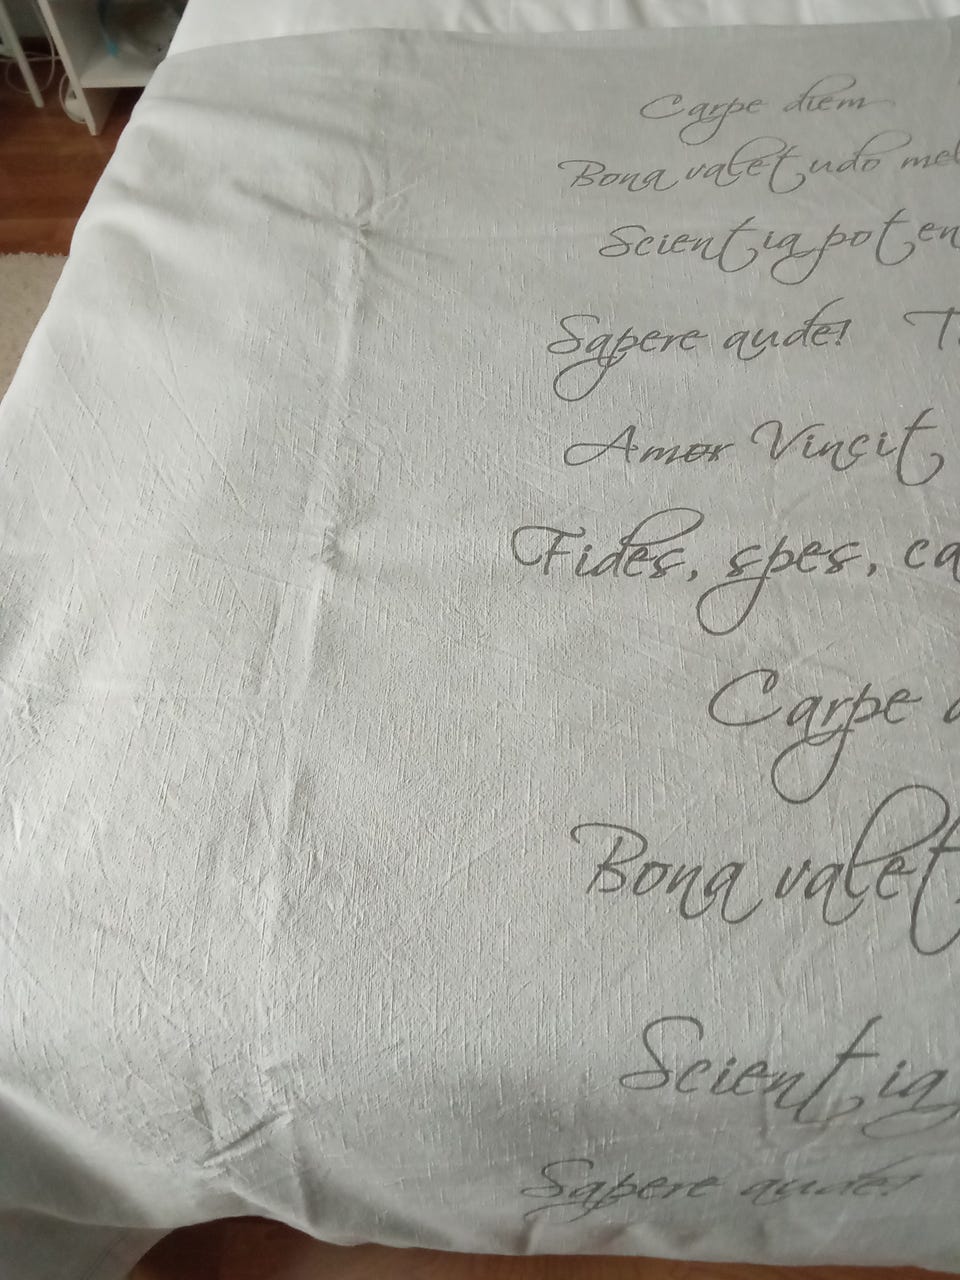 Carpe diem
Bona valetudo mel
Scientia poten
Sapere aude! T
Amor Vincit
Fides, spes, ca
Carpe
Bona valet
Scientia
Sapere aude!